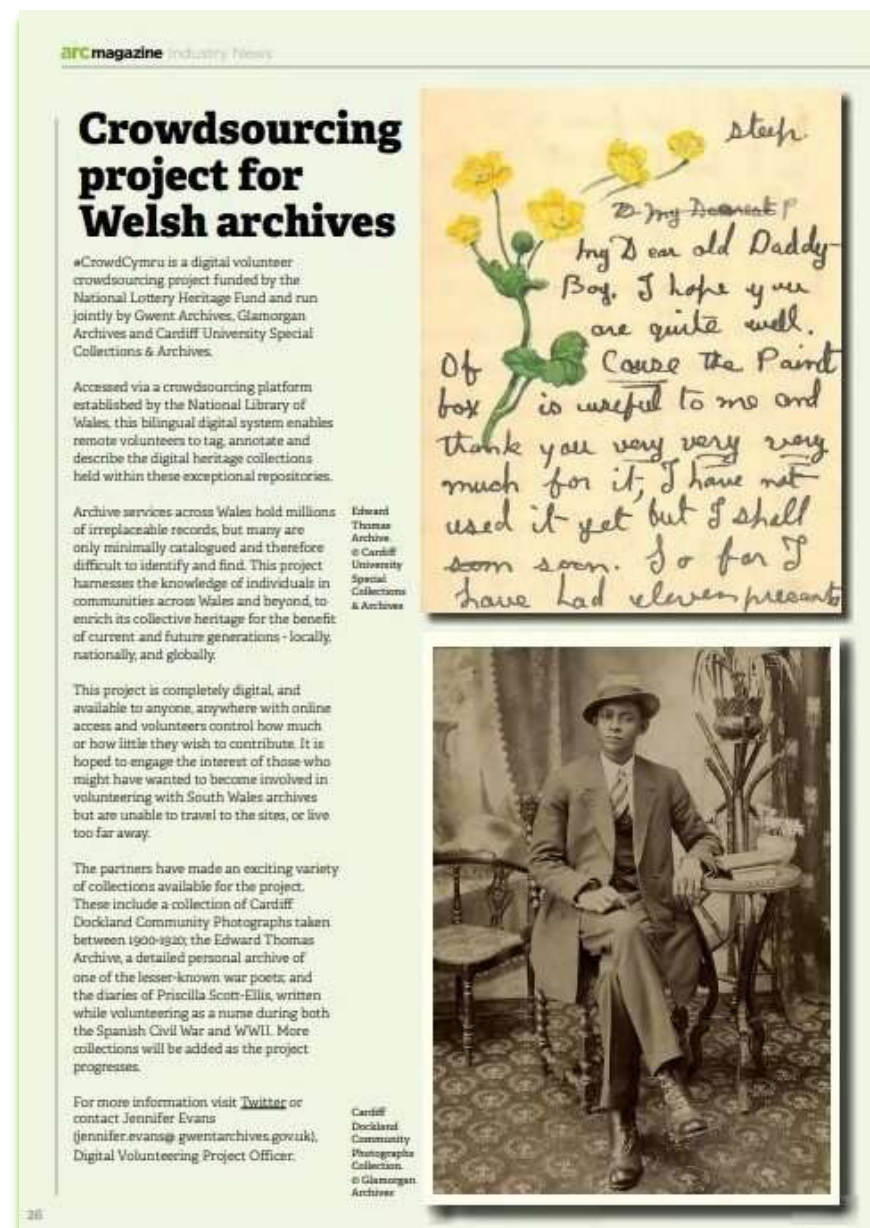 arcmagazine Industry News
Crowdsourcing
project for
Welsh archives
#CrowdCymru is a digital volunteer
crowdsourcing project funded by the
National Lottery Heritage Fund and run
jointly by Gwent Archives, Glamorgan
Archives and Cardiff University Special
Collections & Archives.
Accessed via a crowdsourcing platform
established by the National Library of
Wales, this bilingual digital system enables
remote volunteers to tag, annotate and
describe the digital heritage collections
held within these exceptional repositories.
Archive services across Wales hold millions
of irreplaceable records, but many are
only minimally catalogued and therefore
difficult to identify and find. This project
harnesses the knowledge of individuals in
communities across Wales and beyond, to
enrich its collective heritage for the benefit
of current and future generations - locally,
nationally, and globally.
This project is completely digital, and
available to anyone, anywhere with online
access and volunteers control how much
or how little they wish to contribute. It is
hoped to engage the interest of those who
might have wanted to become involved in
volunteering with South Wales archives
but are unable to travel to the sites, or live
too far away.
The partners have made an exciting variety
of collections available for the project.
These include a collection of Cardiff
Dockland Community Photographs taken
between 1900-1920; the Edward Thomas
Archive, a detailed personal archive of
one of the lesser-known war poets; and
the diaries of Priscilla Scott-Ellis, written
while volunteering as a nurse during both
the Spanish Civil War and WWII. More
collections will be added as the project
progresses.
For more information visit Twitter or
contact Jennifer Evans
(jennifer.evans@ gwentarchives.gov.uk),
Digital Volunteering Project Officer.
Edward
Thomas
Archive.
© Cardiff
University
Special
Collections
& Archives
steep
To my Dearest
my Dear old Daddy
Boy. I hope you
are quite well.
Of Cause the Paint
box is useful to me and
thank you very very very
much for it, I have not
used it yet but I shall
soom soon. So far I
have had eleven presents
Cardiff
Dockland
Community
Photographs
Collection.
© Glamorgan
Archives
26